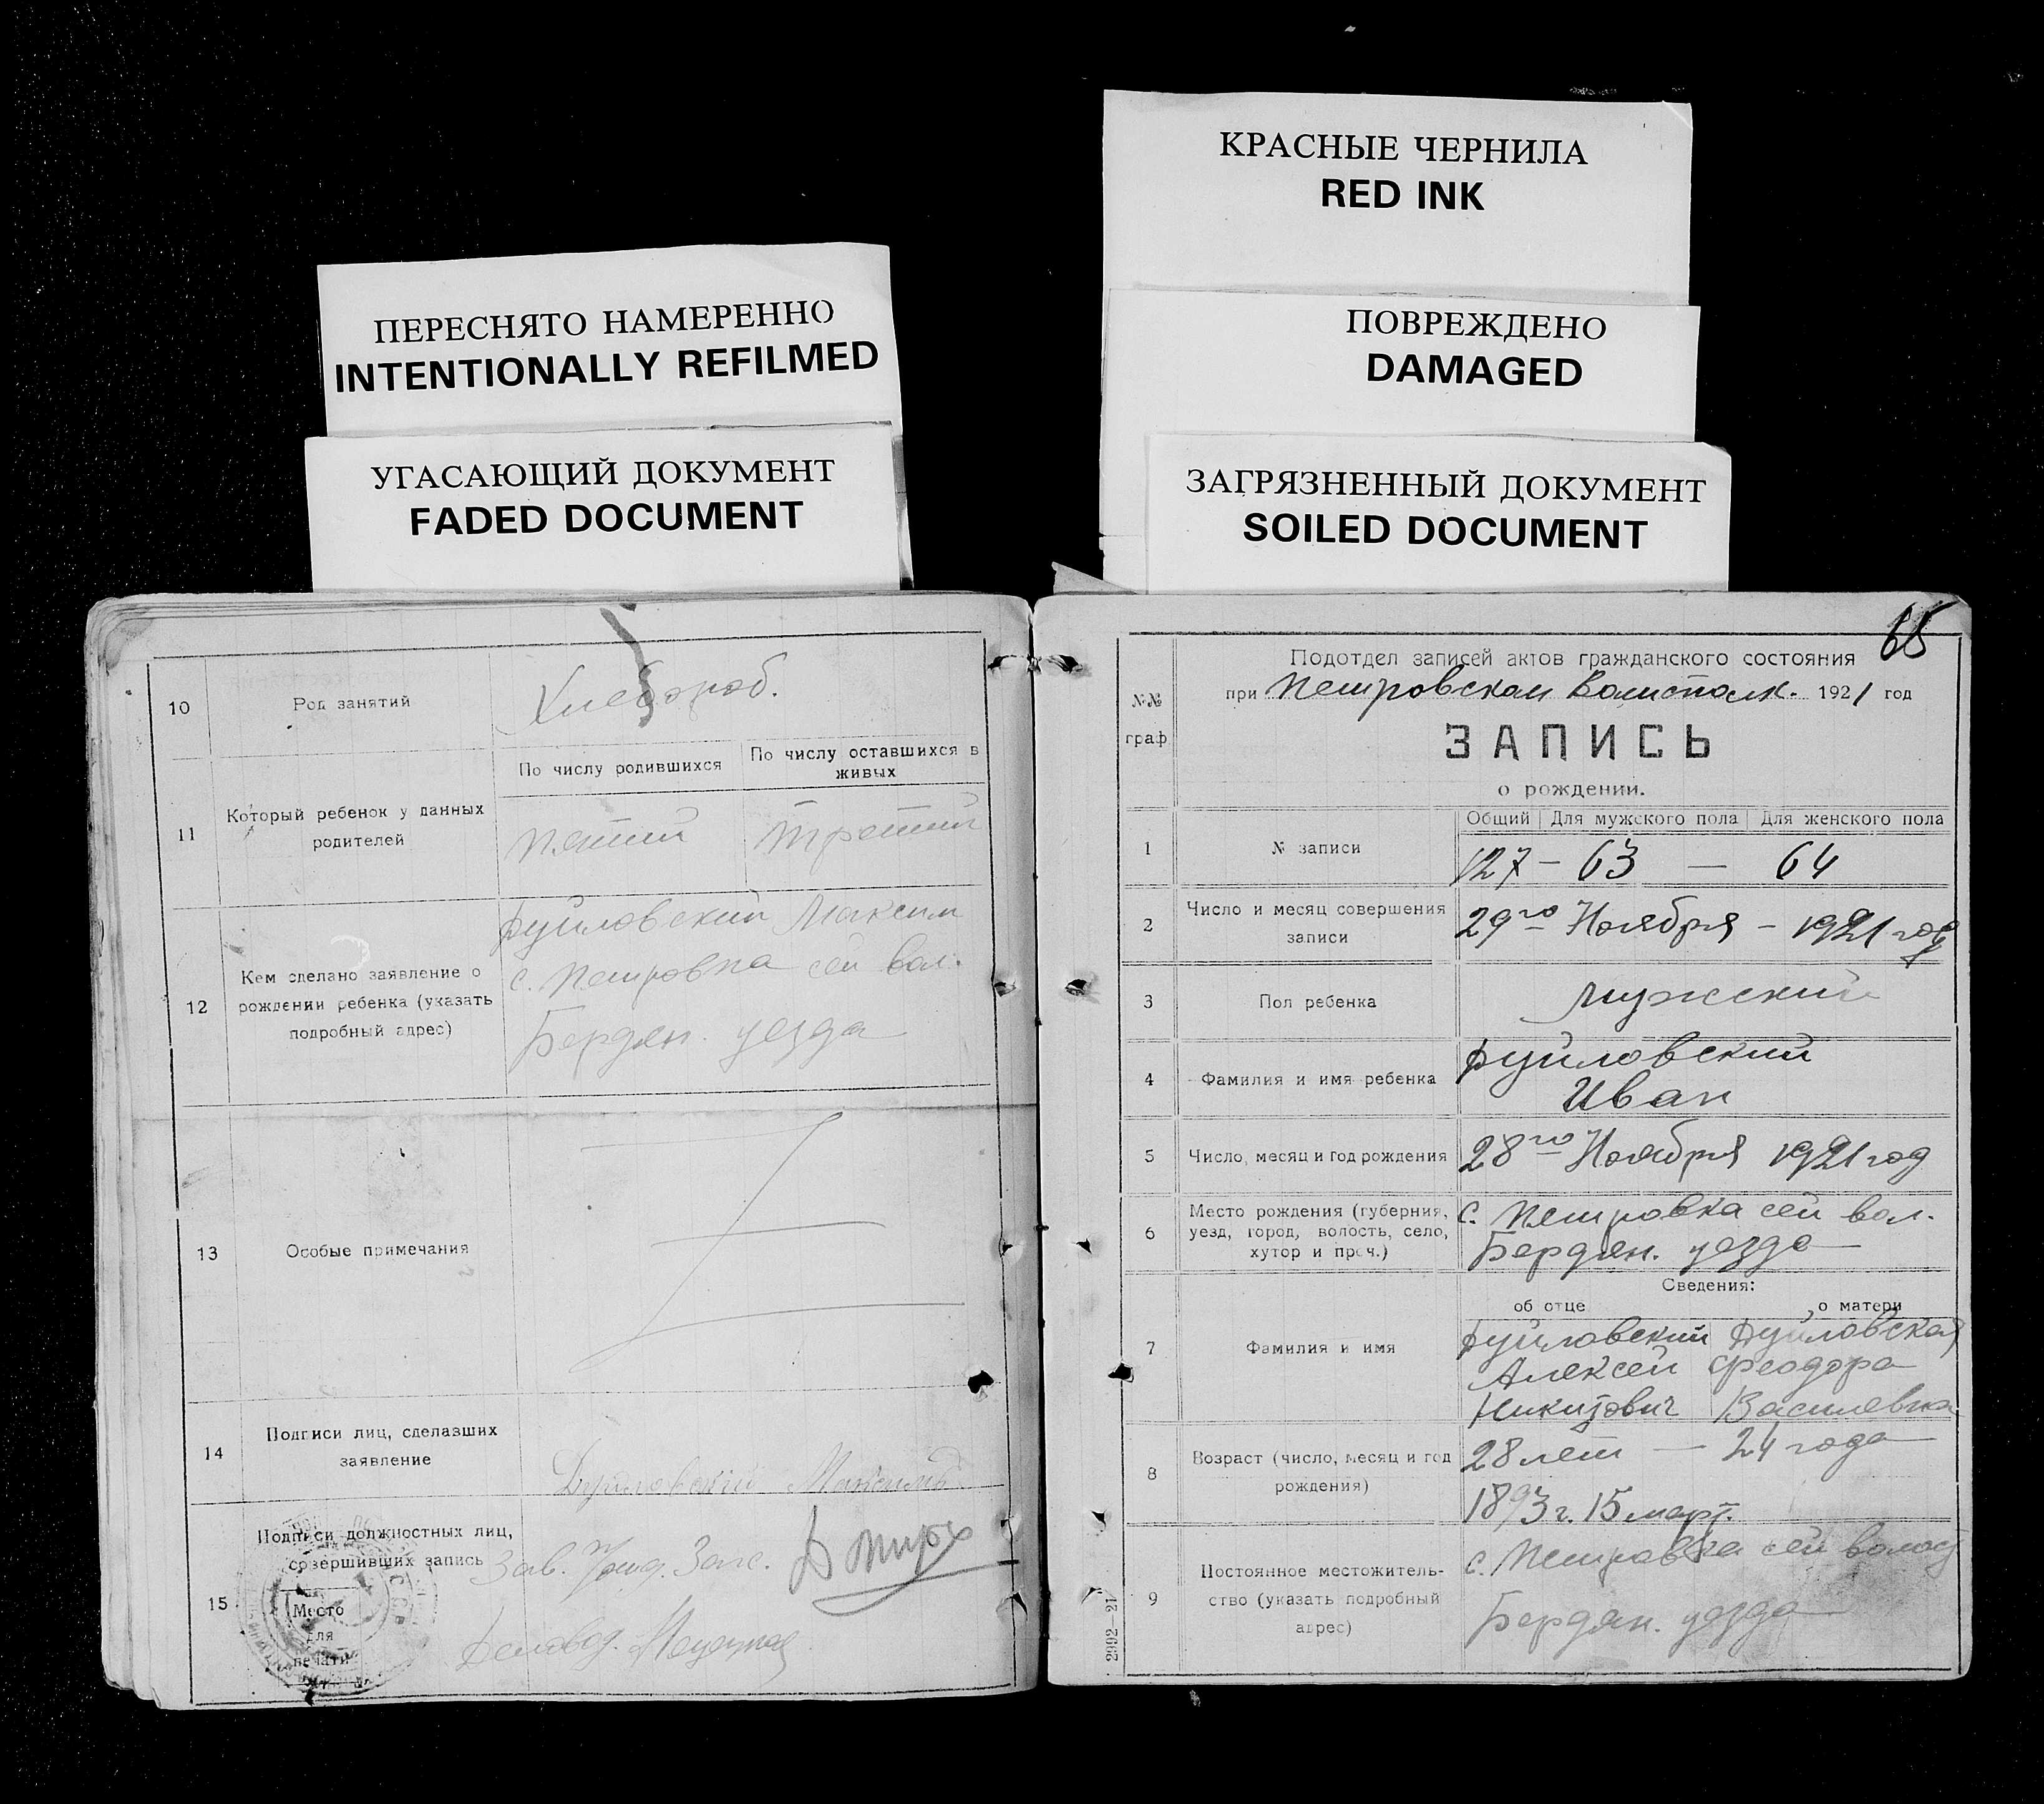 КРАСНЫЕ ЧЕРНИЛА
RED INK
ПЕРЕСНЯТО НАМЕРЕННО
INTENTIONALLY REFILMED
ПОВРЕЖДЕНО
DAMAGED
УГАСАЮЩИЙ ДОКУМЕНТ
FADED DOCUMENT
ЗАГРЯЗНЕННЫЙ ДОКУМЕНТ
SOILED DOCUMENT
10
Род занятий
Хлебороб.
11
Который ребенок у данных
родителей
По числу родившихся
По числу оставшихся в
живых
пятий
третий
12
Кем сделано заявление о
рождении ребенка (указать
подробный адрес)
Дуйловский Максим
с. Петровка сей вол.
Бердян. уезда
13
Особые примечания
14
Подписи лиц, сделавших
заявление
Дуйловский Максимъ
15
Подписи должностных лиц,
совершивших запись
Место
для
печати
Зав. Загс.
Деловод.
65
№№
граф
Подотдел записей актов гражданского состояния
при Петровском 1921 год
ЗАПИСЬ
о рождении.
Общий Для мужского пола Для женского пола
1
№ записи
127 – 63 — 64
2
Число и месяц совершения
записи
29го Ноября – 1921 год
3
Пол ребенка
Мужский
4
Фамилия и имя ребенка
Дуйловский
Иван
5
Число, месяц и год рождения
28го Ноября 1921 год
6
Место рождения (губерния,
уезд, город, волость, село,
хутор и проч.)
с. Петровка сей вол.
Бердян. уезда
Сведения:
об отце
о матери
7
Фамилия и имя
Дуйловский Дуйловская
Алексей Феодора
Никитович Василевна
8
Возраст (число, месяц и год
рождения)
28 лет — 24 года
1893 г. 15 март.
9
Постоянное местожитель-
ство (указать подробный
адрес)
с. Петровка сей волост
Бердян. уезда
2992–21